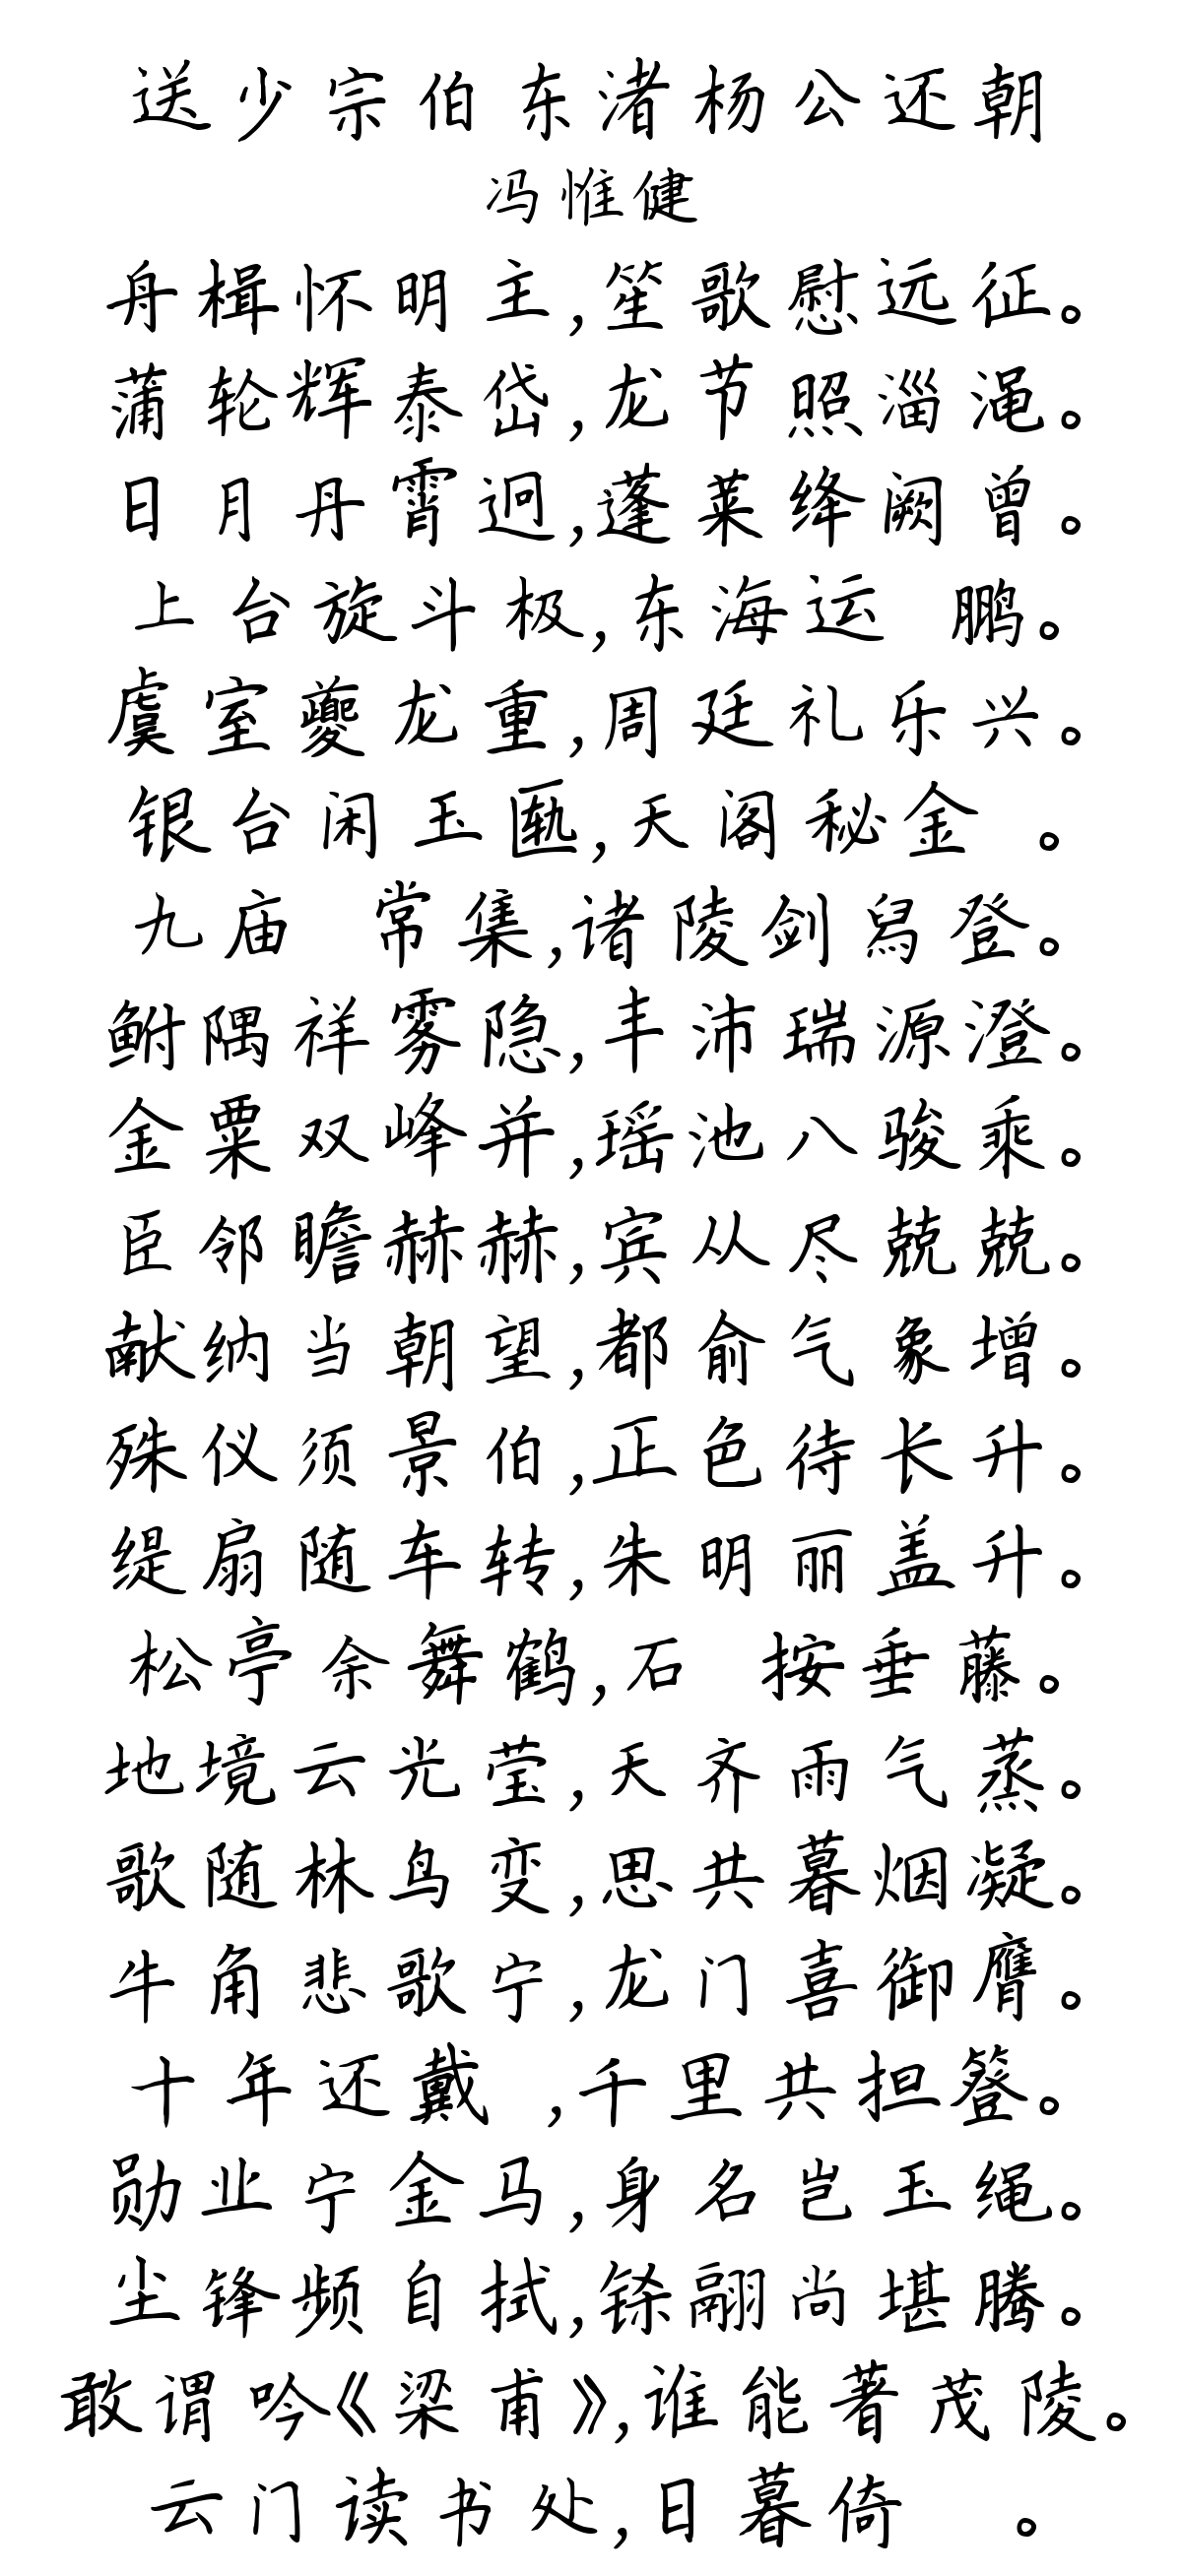 送少宗伯东渚杨公还朝
冯惟健
舟楫怀明主,笙歌慰远征。
蒲轮辉泰岱,龙节照淄渑。
日月丹霄迥,蓬莱绛阙曾。
上台旋斗极,东海运 鹏。
虞室夔龙重,周廷礼乐兴。
银台闲玉匦,天阁秘金 。
九庙 常集,诸陵剑舄登。
鲋隅祥雾隐,丰沛瑞源澄。
金粟双峰并,瑶池八骏乘。
臣邻瞻赫赫,宾从尽兢兢。
献纳当朝望,都俞气象增。
殊仪须景伯,正色待长升。
缇扇随车转,朱明丽盖升。
松亭余舞鹤,石 按垂藤。
地境云光莹,天齐雨气蒸。
歌随林鸟变,思共暮烟凝。
牛角悲歌宁,龙门喜御膺。
十年还戴 ,千里共担簦。
勋业宁金马,身名岂玉绳。
尘锋频自拭,铩翮尚堪腾。
敢谓吟《梁甫》,谁能著茂陵。
云门读书处,日暮倚 。